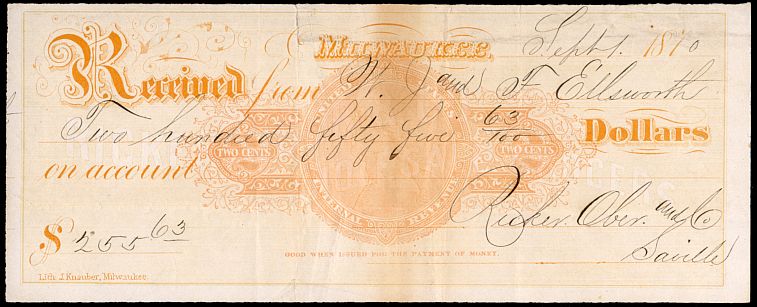 Milwaukee, Sept 1. 1870
Received from W. J and F Ellsworth
Two hundred fifty five 63/100 Dollars
on account
TWO CENTS TWO CENTS
INTERNAL REVENUE
Ricker. Ober. and Co
$ 255 63
Saville
GOOD WHEN ISSUED FOR THE PAYMENT OF MONEY.
Lith J. Knauber, Milwaukee.